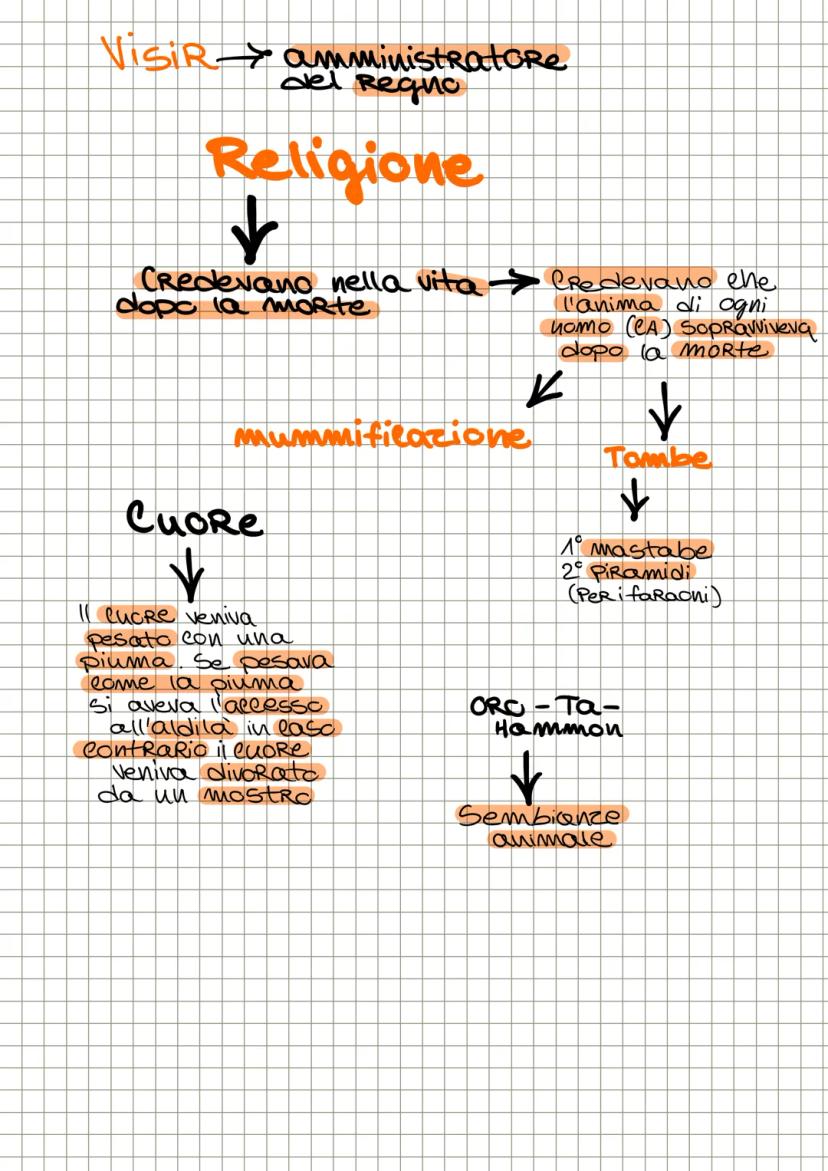 Visir → amministratore
del Regno
Religione
Credevano nella vita →
dopo la morte
Credevano che
l'anima di ogni
uomo (CA) sopravviveva
dopo la morte
mummificazione
Tombe
Cuore
1° mastabe
2° piramidi
(per i faraoni)
Il cuore veniva
pesato con una
piuma. Se pesava
come la piuma
si aveva l'accesso
all'aldilà in caso
contrario il cuore
veniva divorato
da un mostro
ORO-Ta-
Hammon
Sembianze
animale